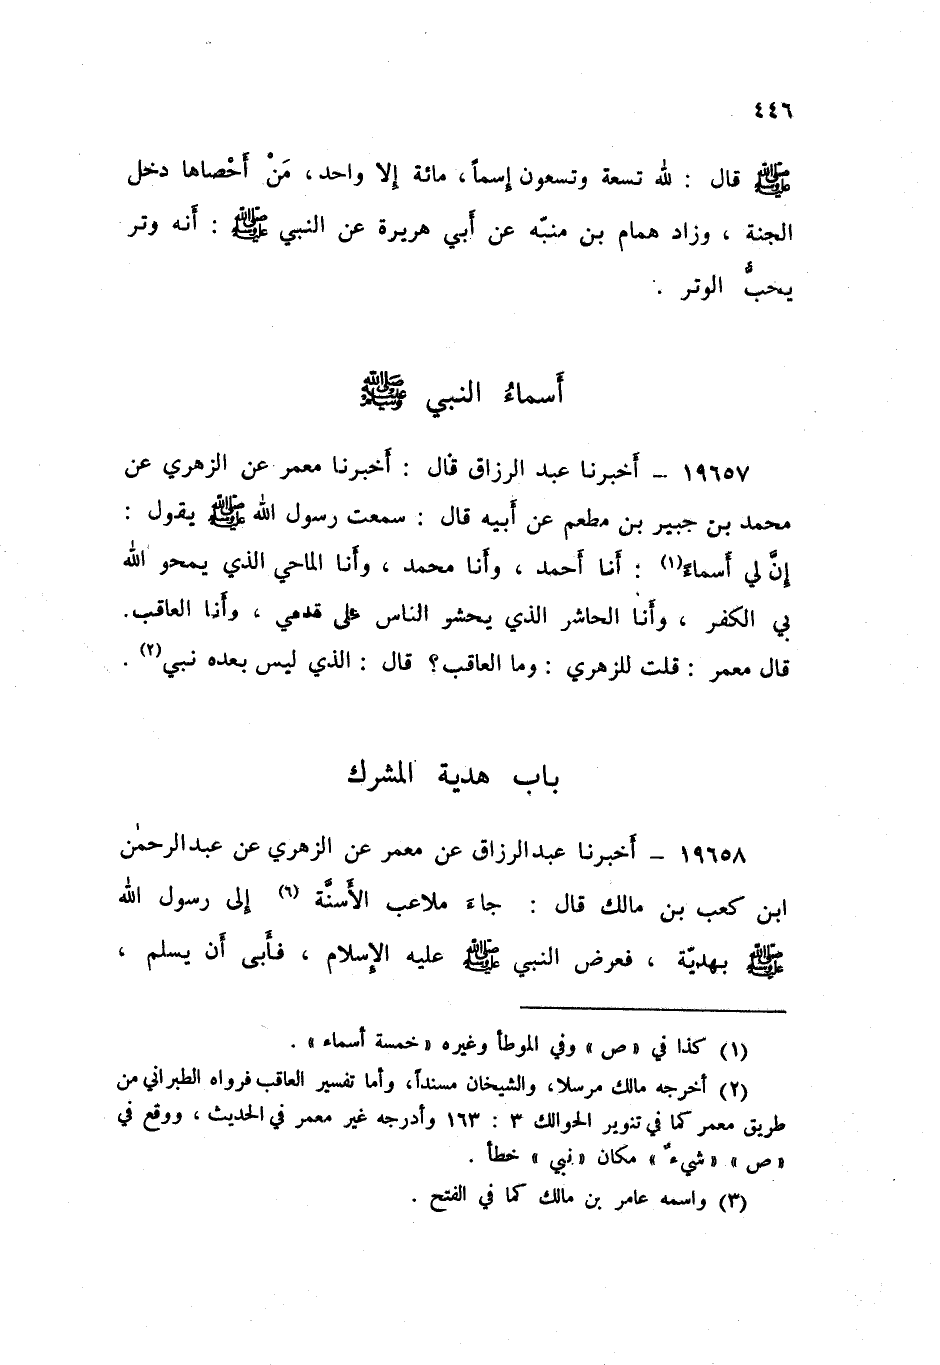 ٤٤٦
ﷺ قال : لله تسعة وتسعون إسماً ، مائة إلا واحد ، مَنْ أَحْصاها دخل
الجنة ، وزاد همام بن منبّه عن أبي هريرة عن النبي ﷺ : أنه وتر
يحبُّ الوتر .
أسماءُ النبي ﷺ
١٩٦٥٧ – أخبرنا عبد الرزاق قال : أخبرنا معمر عن الزهري عن
محمد بن جبير بن مطعم عن أبيه قال : سمعت رسول الله ﷺ يقول :
إنَّ لي أسماءً (١) : أنا أحمد ، وأنا محمد ، وأنا الماحي الذي يمحو الله
بي الكفر ، وأنا الحاشر الذي يحشر الناس على قدمي ، وأنا العاقب .
قال معمر : قلت للزهري : وما العاقب ؟ قال : الذي ليس بعده نبي (٢) .
باب هدية المشرك
١٩٦٥٨ – أخبرنا عبدالرزاق عن معمر عن الزهري عن عبدالرحمٰن
ابن كعب بن مالك قال : جاءَ ملاعب الأسنَّة (٦) إلى رسول الله
ﷺ بهديّة ، فعرض النبي ﷺ عليه الإسلام ، فأبى أن يسلم ،
(١) كذا في «ص» وفي الموطأ وغيره «خمسة أسماء» .
(٢) أخرجه مالك مرسلا، والشيخان مسنداً، وأما تفسير العاقب فرواه الطبراني من
طريق معمر كما في تنوير الحوالك ٣ : ١٦٣ وأدرجه غير معمر في الحديث ، ووقع في
«ص» «شيءٌ» مكان «نبي» خطأ .
(٣) واسمه عامر بن مالك كما في الفتح .